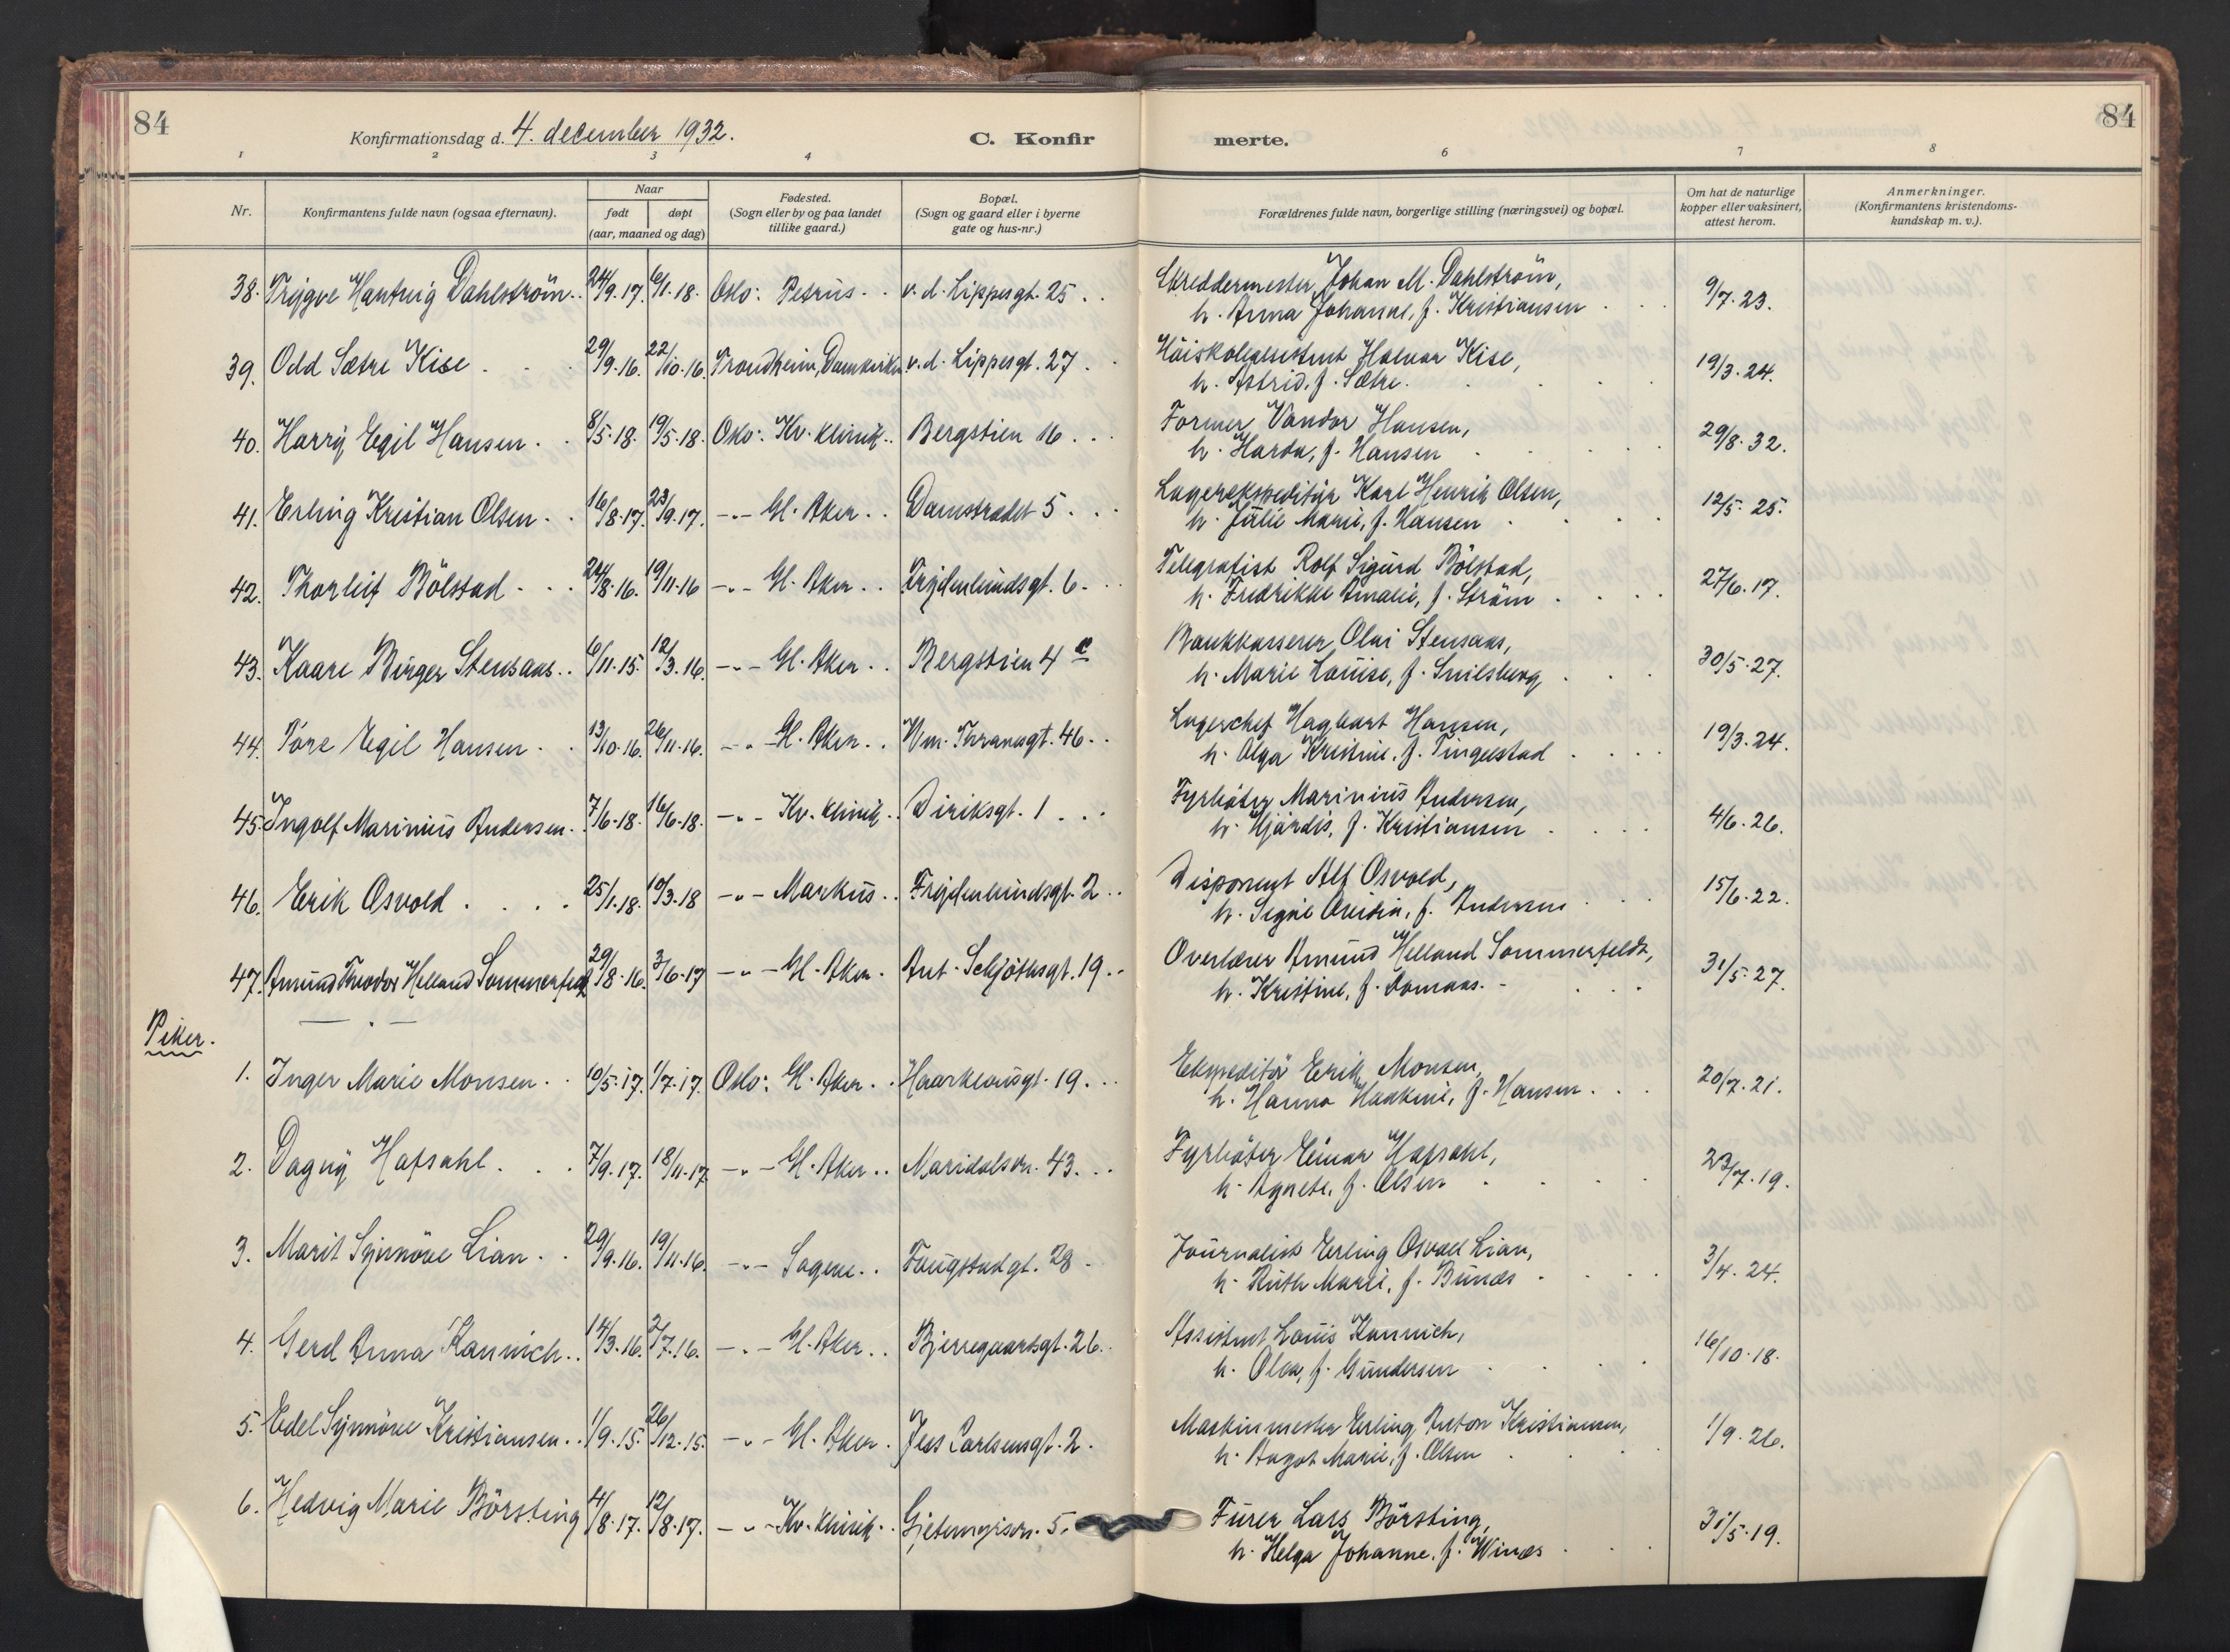 84
Konfirmationsdag d. 4. december 1932.
C. Konfir
merte.
84
1 2 3 4 6 7 8
Nr.
Konfirmantens fulde navn (ogsaa efternavn).
Naar
født
døpt
(aar, maaned og dag)
Fødested.
(Sogn eller by og paa landet
tillike gaard.)
Bopæl.
(Sogn og gaard eller i byerne
gate og hus-nr.)
Forældrenes fulde navn, borgerlige stilling (næringsvei) og bopæl.
Om hat de naturlige
kopper eller vaksinert,
attest herom.
Anmerkninger.
(Konfirmantens kristendoms-
kundskap m. v.).
38. Trygve Hartvig Dahlström. 24/9.17. 6/1.18. Oslo: Petrus. v.d. Lippesgt. 25. Skreddermester Johan M. Dahlström, 9/7.23.
h. Anna Johanne, f. Kristiansen
39. Odd Sætre Kise. 29/9.16. 22/10.16. Trondheim, Domkirken v.d. Lippesgt. 27. Halvar Kise, 19/3.24.
h. Astrid, f. Sætre.
40. Harry Egil Hansen. 8/5.18. 19/5.18. Oslo: Kv. klinik. Bergstien 16. Former Vandor Hansen, 29/8.32.
h. Harda, f. Hansen
41. Erling Kristian Olsen. 16/8.17. 23/9.17. -"- Gl. Aker. Damstradet 5. Lagerekspeditör Karl Henrik Olsen, 12/5.25.
h. Julie Marie, f. Hansen
42. Thorleif Bölstad. 24/8.16. 19/11.16 -"- Gl. Aker. Frydenlundsgt. 6. Telegrafist Rolf Sigurd Bölstad, 27/6.17.
h. Fredrikke Amalie, f. Ström
43. Kaare Birger Stensaas. 6/11.15. 12/3.16. -"- Gl. Aker. Bergstien 4 c Bankkasserer Olai Stensaas, 30/5.27.
h. Marie Louise, f. Smilsberg
44. Tore Egil Hansen. 13/10.16. 26/11.16. -"- Gl. Aker. Vm. Thranesgt. 46. Lagerchef Hagbart Hansen, 19/3.24.
h. Olga Kristine, f. Tingelstad
45. Ingolf Marinius Andersen. 7/6.18. 16/6.18. -"- Kv. klinik. Diriksgt. 1. Fyrböter Marinius Andersen, 4/6.26.
h. Hjördis, f. Kristiansen
46. Erik Osvold. 25/1.18. 10/3.18 -"- Markus. Frydenlundsgt. 2. Disponent Alf Osvold, 15/6.22.
h. Signe Ovidia, f. Andersen
47. Amund Theodor Helland Sommerfeldt 29/8.16. 3/6.17 -"- Gl. Aker. Ant. Schjöthsgt. 19. Overlærer Amund Helland Sommerfeldt, 31/5.27.
h. Kristine, f. Domaas.
Piker.
1. Inger Marie Monsen. 10/5.17. 1/7.17. Oslo: Gl. Aker. Haarkleusgt. 19. Ekspeditör Erik Monsen, 20/7.21.
h. Hanna Haakine, f. Hansen
2. Dagny Hafsahl. 7/9.17. 18/11.17 -"- Gl. Aker. Maridalsvn. 43. Fyrböter Einar Hafsahl, 23/7.19.
h. Agnete, f. Olsen
3. Marit Synnöve Lian. 29/9.16. 19/11.16. -"- Sagene. Faugstadgt. 28. Journalist Erling Osvald Lian, 3/4.24.
h. Ruth Marie, f. Bunæs
4. Gerd Anna Kannich. 14/3.16. 2/7.16. -"- Gl. Aker. Bjerregaardsgt. 26. Assistent Louis Kannich, 16/10.18.
h. Olea, f. Gundersen
5. Edel Synnöve Kristiansen. 1/9.15. 26/12.15. -"- Gl. Aker. Jess Carlsensgt. 2. Maskinmester Erling Anton Kristiansen, 1/9.26.
h. Aagot Marie, f. Olsen
6. Hedvig Marie Börsting 4/8.17. 12/8.17. -"- Kv. klinik. Gjetemyrsvn. 5. Furer Lars Börsting, 31/5.19.
h. Helga Johanne, f. Winæs